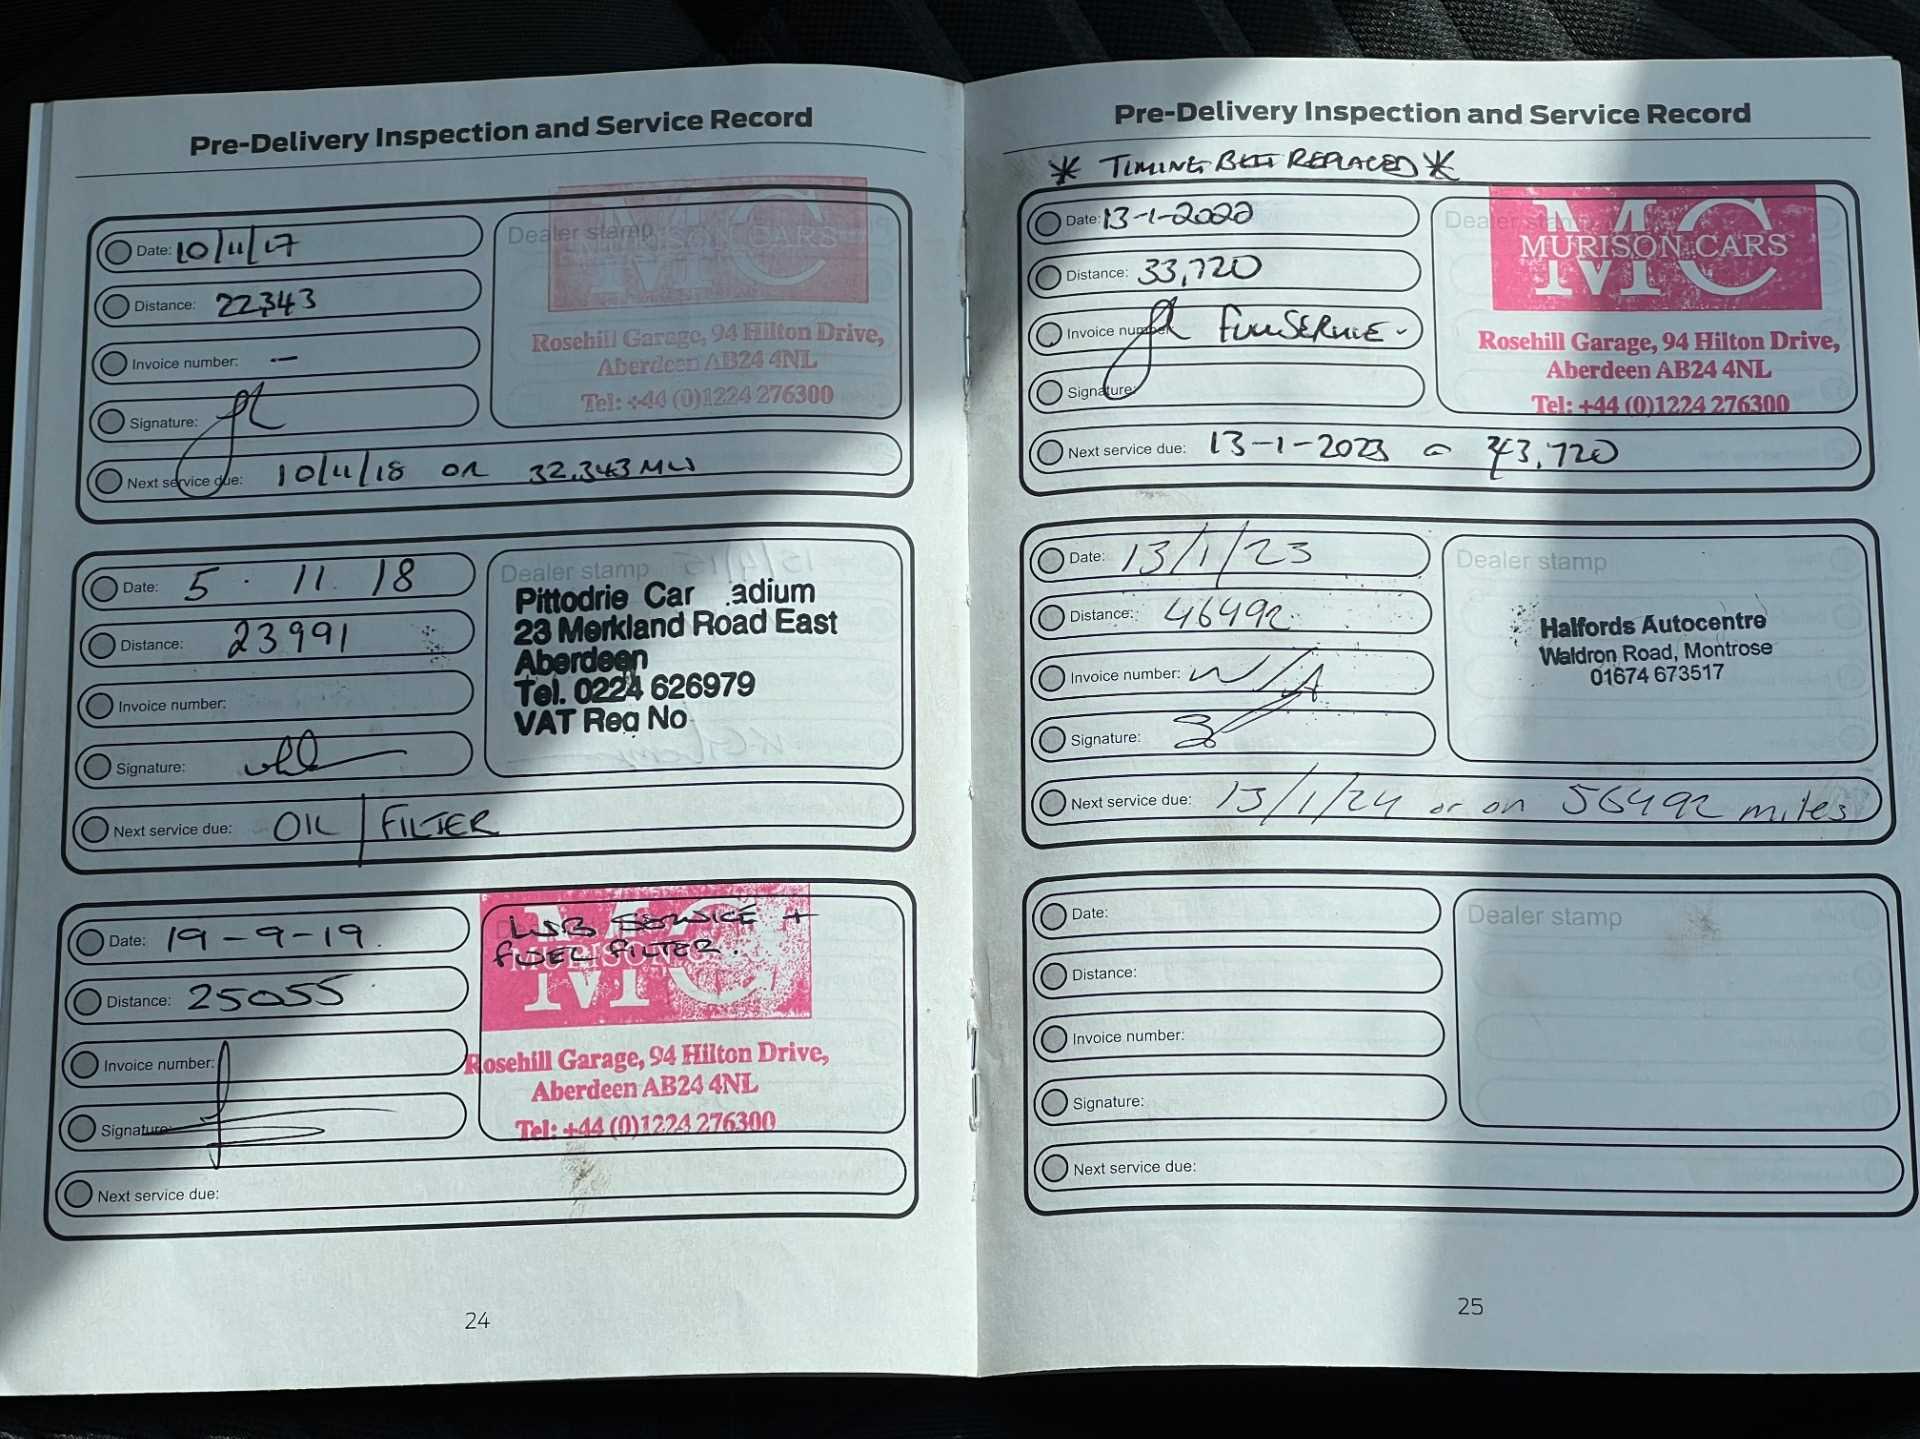 Pre-Delivery Inspection and Service Record
Date: 10/11/17
Distance: 22,343
Invoice number: —
Signature:
Next service due: 10/11/18 OR 32,343
Dealer stamp
MC
MURISON CARS
Rosehill Garage, 94 Hilton Drive,
Aberdeen AB24 4NL
Tel: +44 (0)1224 276300
Date: 5 . 11 . 18
Distance: 23991
Invoice number:
Signature:
Next service due: OIL / FILTER
Dealer stamp
Pittodrie Car adium
23 Merkland Road East
Aberdeen
Tel. 0224 626979
VAT Reg No
Date: 19-9-19.
Distance: 25055
Invoice number:
Signature:
Next service due:
SERVICE +
FUEL FILTER.
MC
MURISON
Rosehill Garage, 94 Hilton Drive,
Aberdeen AB24 4NL
Tel: +44 (0)1224 276300
24
Pre-Delivery Inspection and Service Record
* TIMING BELT REPLACED *
Date: 13-1-2022
Distance: 33,720
Invoice number: FULL SERVICE -
Signature:
Next service due: 13-1-2023 43,720
Dealer stamp
MC
MURISON CARS
Rosehill Garage, 94 Hilton Drive,
Aberdeen AB24 4NL
Tel: +44 (0)1224 276300
Date: 13/1/23
Distance: 46492
Invoice number: N/A
Signature:
Next service due: 13/1/24 or on 56492 miles
Dealer stamp
Halfords Autocentre
Waldron Road, Montrose
01674 673517
Date:
Distance:
Invoice number:
Signature:
Next service due:
Dealer stamp
25